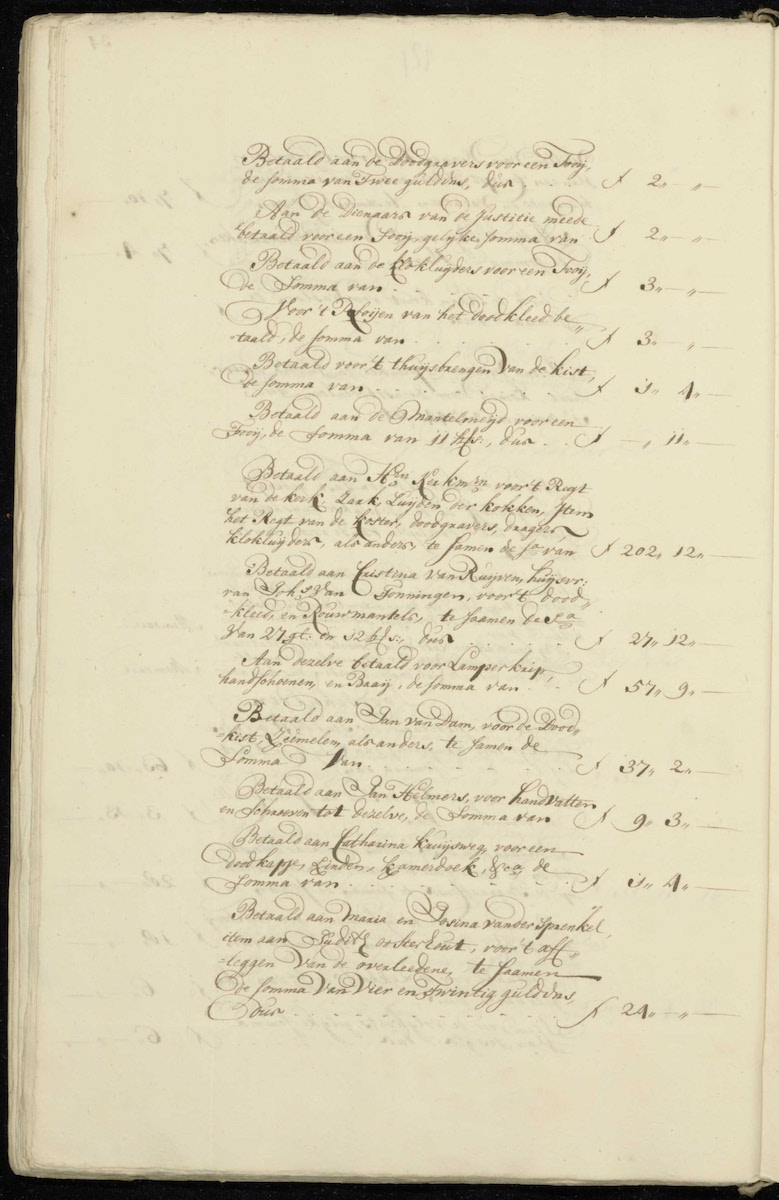 Betaald aan de Doodgravers voor een Fooij,
de somma van Twee guldens, dus . . f 2,, — ,, —
Aan de Dienaars van de Justitie meede
betaald voor een Fooij, gelyke somma van f 2,, — ,, —
Betaald aan de Klokluyders voor een Fooij,
de Somma van . . . . . f 3,, — ,, —
Voor 't van het doodkleed be„
-taald, de somma van . . . . f 3,, — ,, —
Betaald voor 't thuysbrengen van de kist,
de somma van . . . . . f 1,, 4,, —
Betaald aan de Mantelmeijd voor een
Fooij, de Somma van 11 st:, dus . . f — ,, 11,, —
Betaald aan Hrn Kerkmrn voor 't Regt
van de kerk, Zark, Luyden der klokken, Item
het Regt van de Koster, doodgravers, dragers,
klokluyders, als anders, te samen de sa van f 202,, 12,, —
Betaald aan Cristina van Ruyven, huysvr:
van Johs van Tonningen, voor 't dood„
-kleed, en Rouwmantels, te saamen de sa
van 27 gl: en 12 st:, dus . . . f 27,, 12,, —
Aan dezelve betaald voor Lamperkrip,
handschoenen, en Baaij, de somma van . f 57,, 9,, —
Betaald aan Jan van Dam, voor de Dood„
-kist, als anders, te samen de
Somma van . . . . . . f 37,, 2,, —
Betaald aan Jan Helmers, voor handvatten
en Schroeven tot dezelve, de Somma van f 9,, 3,, —
Betaald aan Catharina Kruijsweg, voor een
doodkappe, Linden, kamerdoek, &ca, de
Somma van . . . . . . f 1,, 4,, —
Betaald aan Maria en Josina vander Sprenkel,
item aan Judith oosterhout, voor 't aff„
-leggen van de overleedene, te saamen
de somma van Vier en Twintig guldens,
dus . . . . . . . . f 24,, — ,, —